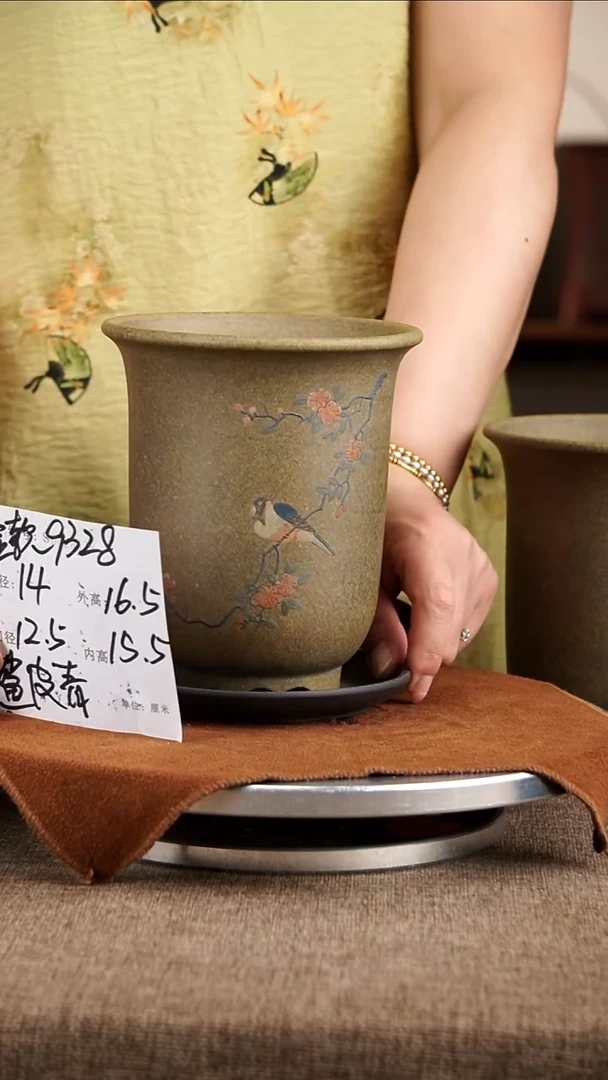 款 9328
径: 14 外高 16.5
径 12.5 内高 15.5
鲨皮青 单位: 厘米